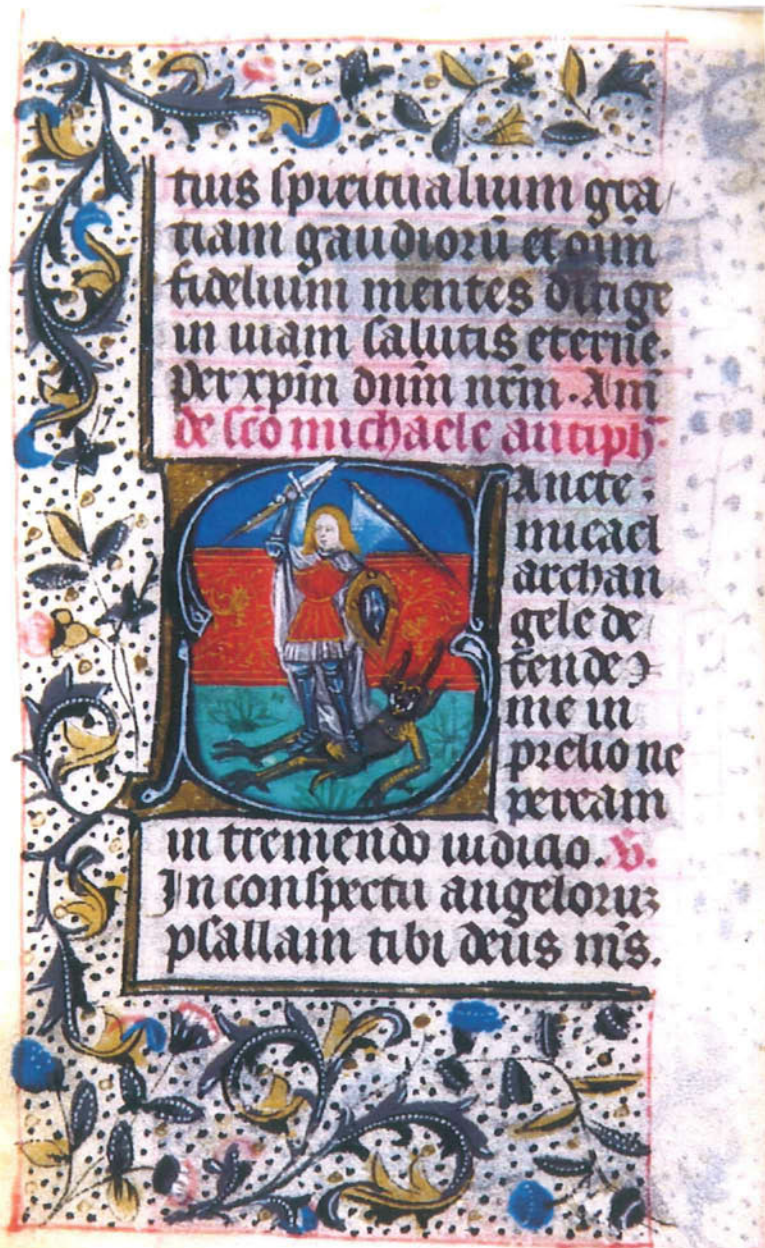 tuus spiritualium gra/
tiam gaudiorū et oīm
fidelium mentes dirige
in uiam salutis eterne.
Per xp̄m dn̄m nr̄m. Am̄
de sc̄o michaele antiph̄.
SAncte
micael
archan
gele de
fende
me in
prelio ne
peream
in tremendo iudicio. v̄.
In conspectu angeloruʒ
psallam tibi deus m̄s.